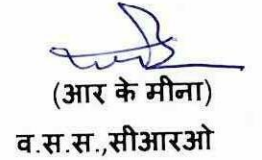 (आर के मीना)
व.स.स.,सीआरओ